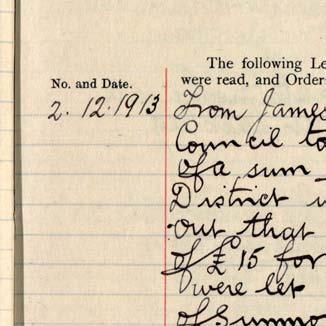 The following Le
No. and Date. were read, and Order
2.12.1913 From James
Council to
of a sum
District
out that
of £15 for
were let
of Summo